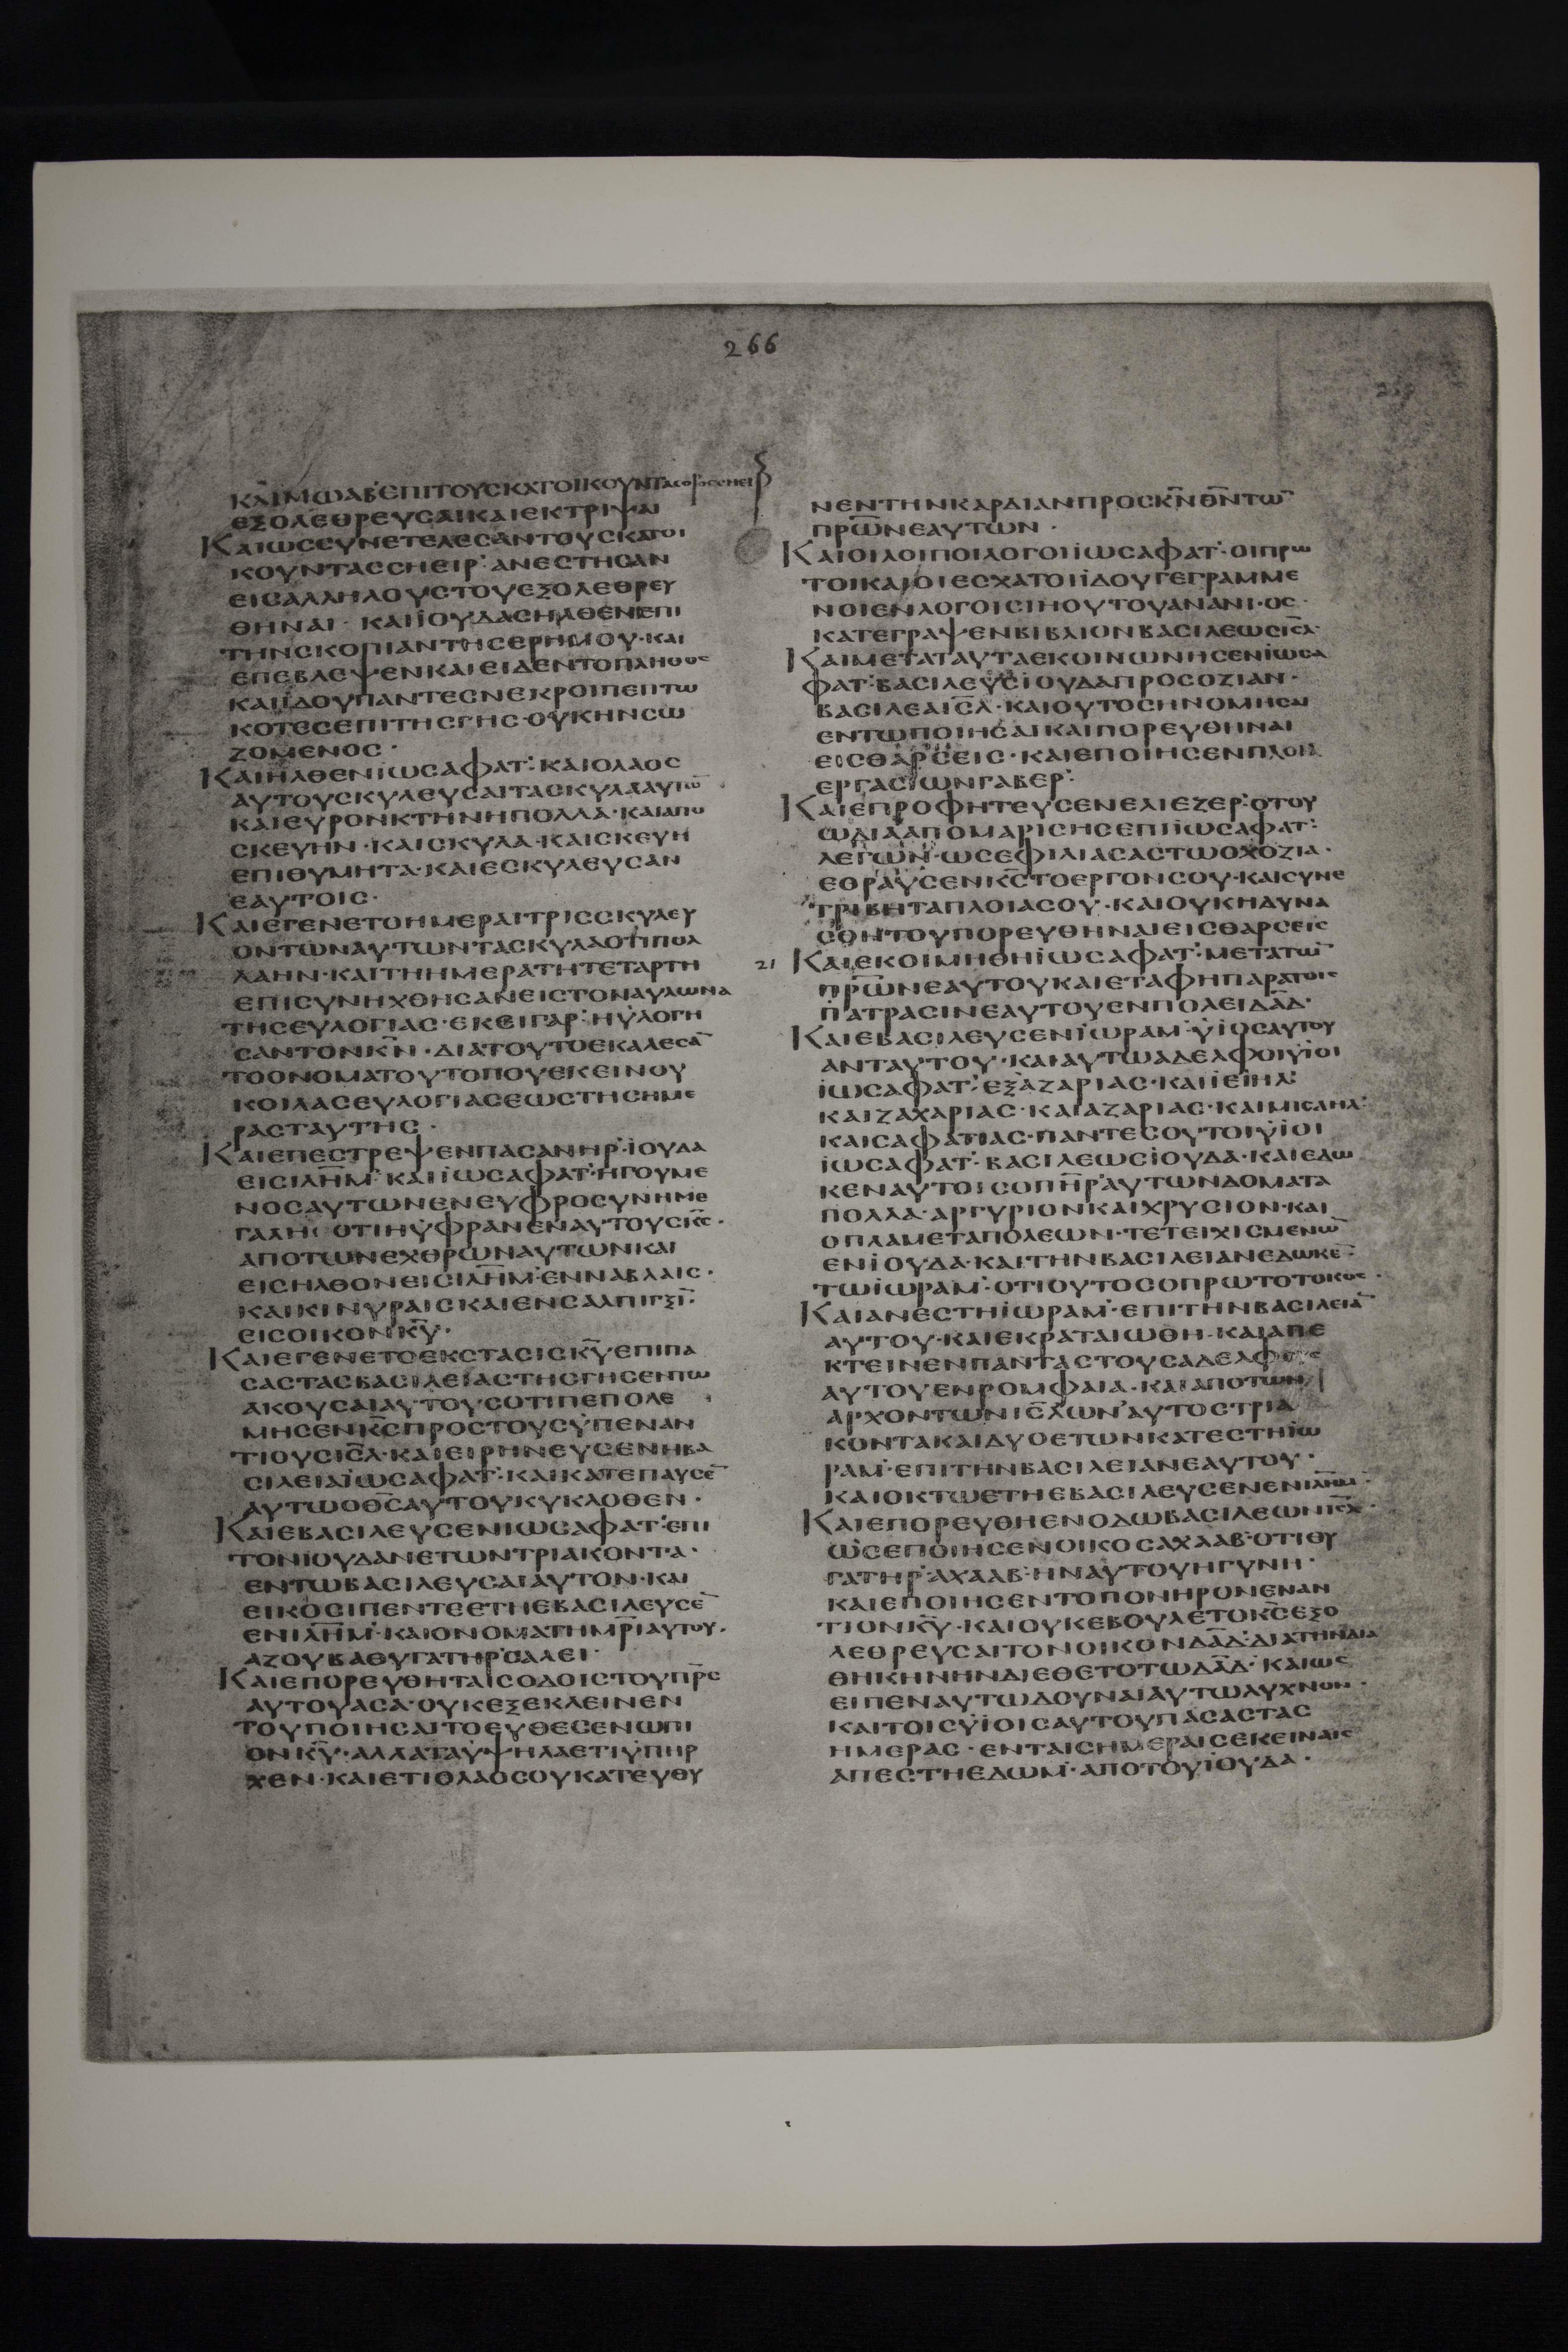 266
ΚΑΙΜΩΑΒ ΕΠΙΤΟΥΣΚΑΤΟΙΚΟΥΝΤΑΣ
ΕΞΟΛΕΘΡΕΥΣΑΙΚΑΙΕΚΤΡΙΨΑΙ
ΚΑΙΩΣΣΥΝΕΤΕΛΕΣΑΝΤΟΥΣΚΑΤΟΙ
ΚΟΥΝΤΑΣΣΗΕΙΡ· ΑΝΕΣΤΗΣΑΝ
ΕΙΣΑΛΛΗΛΟΥΣΤΟΥΕΞΟΛΕΘΡΕΥ
ΘΗΝΑΙ· ΚΑΙΪΟΥΔΑΣΗΛΘΕΝΕΠΙ
ΤΗΝΣΚΟΠΙΑΝΤΗΣΕΡΗΜΟΥ·ΚΑΙ
ΕΠΕΒΛΕΨΕΝΚΑΙΕΙΔΕΝΤΟΠΛΗΘΟΣ
ΚΑΙΪΔΟΥΠΑΝΤΕΣΝΕΚΡΟΙΠΕΠΤΩ
ΚΟΤΕΣΕΠΙΤΗΣΓΗΣ·ΟΥΚΗΝΣΩ
ΖΟΜΕΝΟΣ·
ΚΑΙΗΛΘΕΝΪΩΣΑΦΑΤ· ΚΑΙΟΛΑΟΣ
ΑΥΤΟΥΣΚΥΛΕΥΣΑΙΤΑΣΚΥΛΑΑΥΤΩ̅
ΚΑΙΕΥΡΟΝΚΤΗΝΗΠΟΛΛΑ·ΚΑΙΑΠΟ
ΣΚΕΥΗΝ·ΚΑΙΣΚΥΛΑ·ΚΑΙΣΚΕΥΗ
ΕΠΙΘΥΜΗΤΑ·ΚΑΙΕΣΚΥΛΕΥΣΑΝ
ΕΑΥΤΟΙΣ·
ΚΑΙΕΓΕΝΕΤΟΗΜΕΡΑΙΤΡΙΣΣΚΥΛΕΥ
ΟΝΤΩΝΑΥΤΩΝΤΑΣΚΥΛΑΟΤΙΠΟΛ
ΛΑΗΝ·ΚΑΙΤΗΗΜΕΡΑΤΗΤΕΤΑΡΤΗ
ΕΠΙΣΥΝΗΧΘΗΣΑΝΕΙΣΤΟΝΑΥΛΩΝΑ
ΤΗΣΕΥΛΟΓΙΑΣ·ΕΚΕΙΓΑΡ· ΗΥΛΟΓΗ
ΣΑΝΤΟΝΚ̅Ν̅·ΔΙΑΤΟΥΤΟΕΚΑΛΕΣΑ̅
ΤΟΟΝΟΜΑΤΟΥΤΟΠΟΥΕΚΕΙΝΟΥ
ΚΟΙΛΑΣΕΥΛΟΓΙΑΣΕΩΣΤΗΣΗΜΕ
ΡΑΣΤΑΥΤΗΣ·
ΚΑΙΕΠΕΣΤΡΕΨΕΝΠΑΣΑΝΗΡ·ΪΟΥΔΑ
ΕΙΣΙΛ̅Η̅Μ̅· ΚΑΙΪΩΣΑΦΑΤ· ΗΓΟΥΜΕ
ΝΟΣΑΥΤΩΝΕΝΕΥΦΡΟΣΥΝΗΜΕ
ΓΑΛΗ· ΟΤΙΗΥΦΡΑΝΕΝΑΥΤΟΥΣΚ̅Σ̅·
ΑΠΟΤΩΝΕΧΘΡΩΝΑΥΤΩΝΚΑΙ
ΕΙΣΗΛΘΟΝΕΙΣΙΛ̅Η̅Μ̅·ΕΝΝΑΒΛΑΙΣ·
ΚΑΙΚΙΝΥΡΑΙΣΚΑΙΕΝΣΑΛΠΙΓΞΙ̅·
ΕΙΣΟΙΚΟΝΚ̅Υ̅·
ΚΑΙΕΓΕΝΕΤΟΕΚΣΤΑΣΙΣΚ̅Υ̅ΕΠΙΠΑ
ΣΑΣΤΑΣΒΑΣΙΛΕΙΑΣΤΗΣΓΗΣΕΝΤΩ
ΑΚΟΥΣΑΙΑΥΤΟΥΣΟΤΙΠΕΠΟΛΕ
ΜΗΣΕΝΚ̅Σ̅ΠΡΟΣΤΟΥΣΫΠΕΝΑΝ
ΤΙΟΥΣΙ̅Σ̅Λ̅·ΚΑΙΕΙΡΗΝΕΥΣΕΝΗΒΑ
ΣΙΛΕΙΑΪΩΣΑΦΑΤ· ΚΑΙΚΑΤΕΠΑΥΣΕ̅
ΑΥΤΩΟΘ̅Σ̅ΑΥΤΟΥΚΥΚΛΟΘΕΝ·
ΚΑΙΕΒΑΣΙΛΕΥΣΕΝΪΩΣΑΦΑΤ·ΕΠΙ
ΤΟΝΪΟΥΔΑΝΕΤΩΝΤΡΙΑΚΟΝΤΑ·
ΕΝΤΩΒΑΣΙΛΕΥΣΑΙΑΥΤΟΝ·ΚΑΙ
ΕΙΚΟΣΙΠΕΝΤΕΕΤΗΕΒΑΣΙΛΕΥΣΕ̅
ΕΝΙΛ̅Η̅Μ̅·ΚΑΙΟΝΟΜΑΤΗΜ̅Ρ̅Ι̅ΑΥΤΟΥ·
ΑΖΟΥΒΑΘΥΓΑΤΗΡ·ΣΑΛΕΙ·
ΚΑΙΕΠΟΡΕΥΘΗΤΑΙΣΟΔΟΙΣΤΟΥΠ̅Ρ̅Σ̅
ΑΥΤΟΥΑΣΑ·ΟΥΚΕΞΕΚΛΕΙΝΕΝ
ΤΟΥΠΟΙΗΣΑΙΤΟΕΥΘΕΣΕΝΩΠΙ
ΟΝΚ̅Υ̅·ΑΛΛΑΤΑΫΨΗΛΑΕΤΙΫΠΗΡ
ΧΕΝ·ΚΑΙΕΤΙΟΛΑΟΣΟΥΚΑΤΕΥΘΥ
ΝΕΝΤΗΝΚΑΡΔΙΑΝΠΡΟΣΚ̅Ν̅Θ̅Ν̅ΤΩ̅
ΠΡ̅Ω̅ΝΕΑΥΤΩΝ·
ΚΑΙΟΙΛΟΙΠΟΙΛΟΓΟΙΪΩΣΑΦΑΤ·ΟΙΠΡΩ
ΤΟΙΚΑΙΟΙΕΣΧΑΤΟΙΪΔΟΥΓΕΓΡΑΜΜΕ
ΝΟΙΕΝΛΟΓΟΙΣΙΗΟΥΤΟΥΑΝΑΝΙ·ΟΣ
ΚΑΤΕΓΡΑΨΕΝΒΙΒΛΙΟΝΒΑΣΙΛΕΩΣΙ̅Σ̅Λ̅
ΚΑΙΜΕΤΑΤΑΥΤΑΕΚΟΙΝΩΝΗΣΕΝΪΩΣΑ
ΦΑΤ·ΒΑΣΙΛΕΥΣΪΟΥΔΑΠΡΟΣΟΖΙΑΝ·
ΒΑΣΙΛΕΑΙ̅Σ̅Λ̅·ΚΑΙΟΥΤΟΣΗΝΟΜΗΣΑΙ
ΕΝΤΩΠΟΙΗΣΑΙΚΑΙΠΟΡΕΥΘΗΝΑΙ
ΕΙΣΘΑΡΣΕΙΣ·ΚΑΙΕΠΟΙΗΣΕΝΠΛΟΙΑ
ΕΡΓΑΣΙΩΝΓΑΒΕΡ·
ΚΑΙΕΠΡΟΦΗΤΕΥΣΕΝΕΛΙΕΖΕΡ·ΟΤΟΥ
ΩΔΙΑΑΠΟΜΑΡΙΣΗΣΕΠΙΪΩΣΑΦΑΤ·
ΛΕΓΩΝ·ΩΣΕΦΙΛΙΑΣΑΣΤΩΟΧΟΖΙΑ·
ΕΘΡΑΥΣΕΝΚ̅Σ̅ΤΟΕΡΓΟΝΣΟΥ·ΚΑΙΣΥΝΕ
ΤΡΙΒΗΤΑΠΛΟΙΑΣΟΥ·ΚΑΙΟΥΚΗΔΥΝΑ
ΣΘΗΤΟΥΠΟΡΕΥΘΗΝΑΙΕΙΣΘΑΡΣΕΙΣ
21 ΚΑΙΕΚΟΙΜΗΘΗΪΩΣΑΦΑΤ·ΜΕΤΑΤΩ̅
ΠΡ̅Ω̅ΝΕΑΥΤΟΥΚΑΙΕΤΑΦΗΠΑΡΑΤΟΙΣ
ΠΑΤΡΑΣΙΝΕΑΥΤΟΥΕΝΠΟΛΕΙΔ̅Α̅Δ̅·
ΚΑΙΕΒΑΣΙΛΕΥΣΕΝΪΩΡΑΜ·ΫΪΟΣΑΥΤΟΥ
ΑΝΤΑΥΤΟΥ·ΚΑΙΑΥΤΩΑΔΕΛΦΟΙΫΪΟΙ
ΪΩΣΑΦΑΤ·ΕΞΑΖΑΡΙΑΣ·ΚΑΙΪΕΙΗΛ·
ΚΑΙΖΑΧΑΡΙΑΣ·ΚΑΙΑΖΑΡΙΑΣ·ΚΑΙΜΙΣΑΗΛ·
ΚΑΙΣΑΦΑΤΙΑΣ·ΠΑΝΤΕΣΟΥΤΟΙΫΪΟΙ
ΪΩΣΑΦΑΤ·ΒΑΣΙΛΕΩΣΪΟΥΔΑ·ΚΑΙΕΔΩ
ΚΕΝΑΥΤΟΙΣΟΠ̅Η̅Ρ̅ΑΥΤΩΝΔΟΜΑΤΑ
ΠΟΛΛΑ·ΑΡΓΥΡΙΟΝΚΑΙΧΡΥΣΙΟΝ·ΚΑΙ
ΟΠΛΑΜΕΤΑΠΟΛΕΩΝ·ΤΕΤΕΙΧΙΣΜΕΝΩ̅
ΕΝΪΟΥΔΑ·ΚΑΙΤΗΝΒΑΣΙΛΕΙΑΝΕΔΩΚΕ̅·
ΤΩΪΩΡΑΜ·ΟΤΙΟΥΤΟΣΟΠΡΩΤΟΤΟΚΟΣ·
ΚΑΙΑΝΕΣΤΗΪΩΡΑΜ·ΕΠΙΤΗΝΒΑΣΙΛΕΙΑ̅
ΑΥΤΟΥ·ΚΑΙΕΚΡΑΤΑΙΩΘΗ·ΚΑΙΑΠΕ
ΚΤΕΙΝΕΝΠΑΝΤΑΣΤΟΥΣΑΔΕΛΦΟΥΣ
ΑΥΤΟΥΕΝΡΟΜΦΑΙΑ·ΚΑΙΑΠΟΤΩΝ
ΑΡΧΟΝΤΩΝΙ̅Σ̅Λ̅ΩΝΑΥΤΟΣΤΡΙΑ
ΚΟΝΤΑΚΑΙΔΥΟΕΤΩΝΚΑΤΕΣΤΗΪΩ
ΡΑΜ·ΕΠΙΤΗΝΒΑΣΙΛΕΙΑΝΕΑΥΤΟΥ·
ΚΑΙΟΚΤΩΕΤΗΕΒΑΣΙΛΕΥΣΕΝΕΝΙΛ̅Η̅Μ̅·
ΚΑΙΕΠΟΡΕΥΘΗΕΝΟΔΩΒΑΣΙΛΕΩΝΙ̅Σ̅Λ̅·
ΩΣΕΠΟΙΗΣΕΝΟΙΚΟΣΑΧΑΑΒ·ΟΤΙΘΥ
ΓΑΤΗΡ·ΑΧΑΑΒ·ΗΝΑΥΤΟΥΗΓΥΝΗ·
ΚΑΙΕΠΟΙΗΣΕΝΤΟΠΟΝΗΡΟΝΕΝΑΝ
ΤΙΟΝΚ̅Υ̅·ΚΑΙΟΥΚΕΒΟΥΛΕΤΟΚ̅Σ̅ΕΞΟ
ΛΕΘΡΕΥΣΑΙΤΟΝΟΙΚΟΝΔ̅Α̅Δ̅·ΔΙΑΤΗΝΔΙΑ
ΘΗΚΗΝΗΝΔΙΕΘΕΤΟΤΩΔ̅Α̅Δ̅·ΚΑΙΩΣ
ΕΙΠΕΝΑΥΤΩΔΟΥΝΑΙΑΥΤΩΛΥΧΝΟΝ·
ΚΑΙΤΟΙΣΫΪΟΙΣΑΥΤΟΥΠΑΣΑΣΤΑΣ
ΗΜΕΡΑΣ·ΕΝΤΑΙΣΗΜΕΡΑΙΣΕΚΕΙΝΑΙΣ
ΑΠΕΣΤΗΕΔΩΜ·ΑΠΟΤΟΥΪΟΥΔΑ·